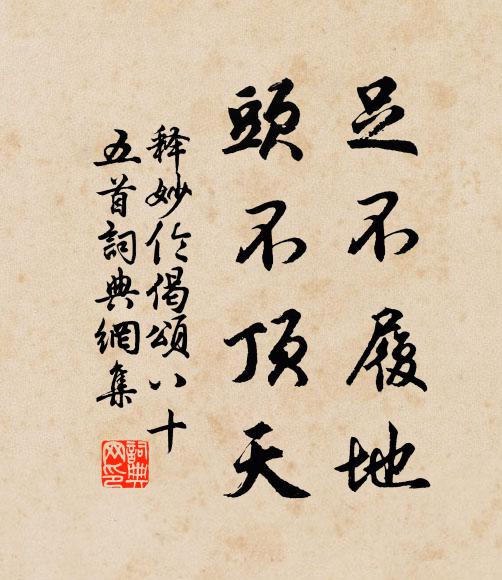 足不履地
頭不頂天
释妙伦偈頌八十
五首詞典網集
詞典
网印